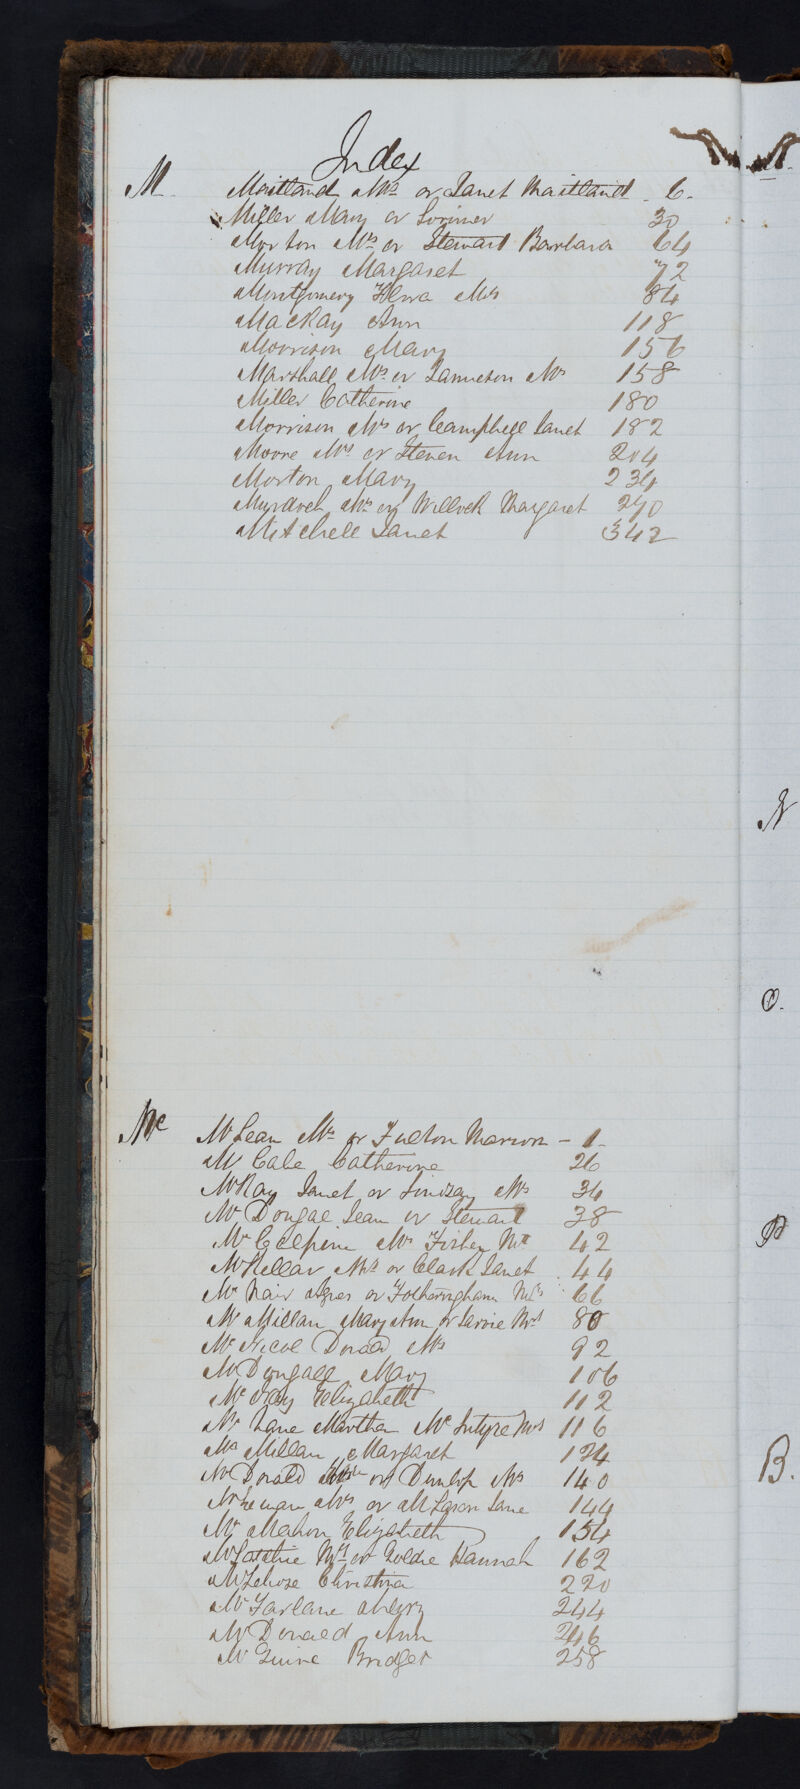 Index
M. Maitland Mrs or Janet Maitland - 6.
Miller Mary or Lorimer 30
Morton Mrs or Stewart Barbara 64
Murray Margaret 72
Montgomery Flora Mrs 84
MacKay Ann 118
Morrison Mary 156
Marshall Mrs or Jamieson Mrs 158
Miller Catherine 180
Morrison Mrs or Campbell Janet 182
Moore Mrs or Steven Ann 204
Morton Mary 234
Murdoch Mrs or Willock Margaret 240
Mitchell Janet 342
N
O.
Mc McLean Mrs or Fulton Marion - 1-
Mc Cabe Catherine 26
McKay Janet or Lindsay Mrs 34
Mc Dougal Jean or Stewart 38
P
Mc Mrs Fisher 42
McKellar Mrs or Clark Janet 44
Mc Nair Agnes or Fotheringham Mrs 66
Mc Millan Mary Ann or Jarvie Mrs 80
Mc Nicol Donald Mrs 92
McDougall Mary 106
Mc Kay Elizabeth 112
Mc Lane Martha McIntyre Mrs 116
Mc Millan Margaret 124
Mc Donald or Dunlop Mrs 140
B.
Mrs or Jane 144
Mc Mahon Elizabeth 154
Mrs or Goldie Hannah 162
Christina 220
Mc Farlane Mary 244
Mc Donald Ann 246
Mc Guire Bridget 258